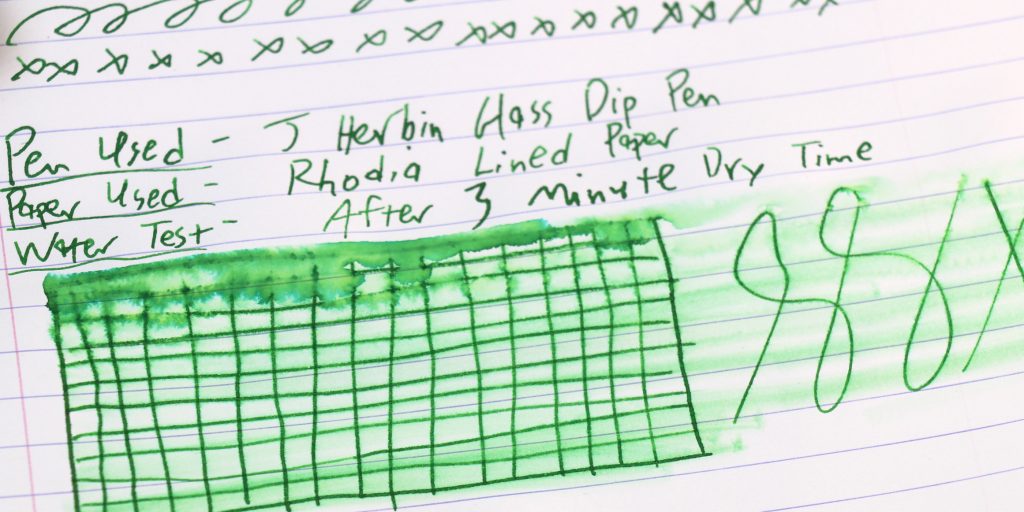 Pen Used - J Herbin Glass Dip Pen
Paper Used - Rhodia Lined Paper
Water Test - After 3 Minute Dry Time